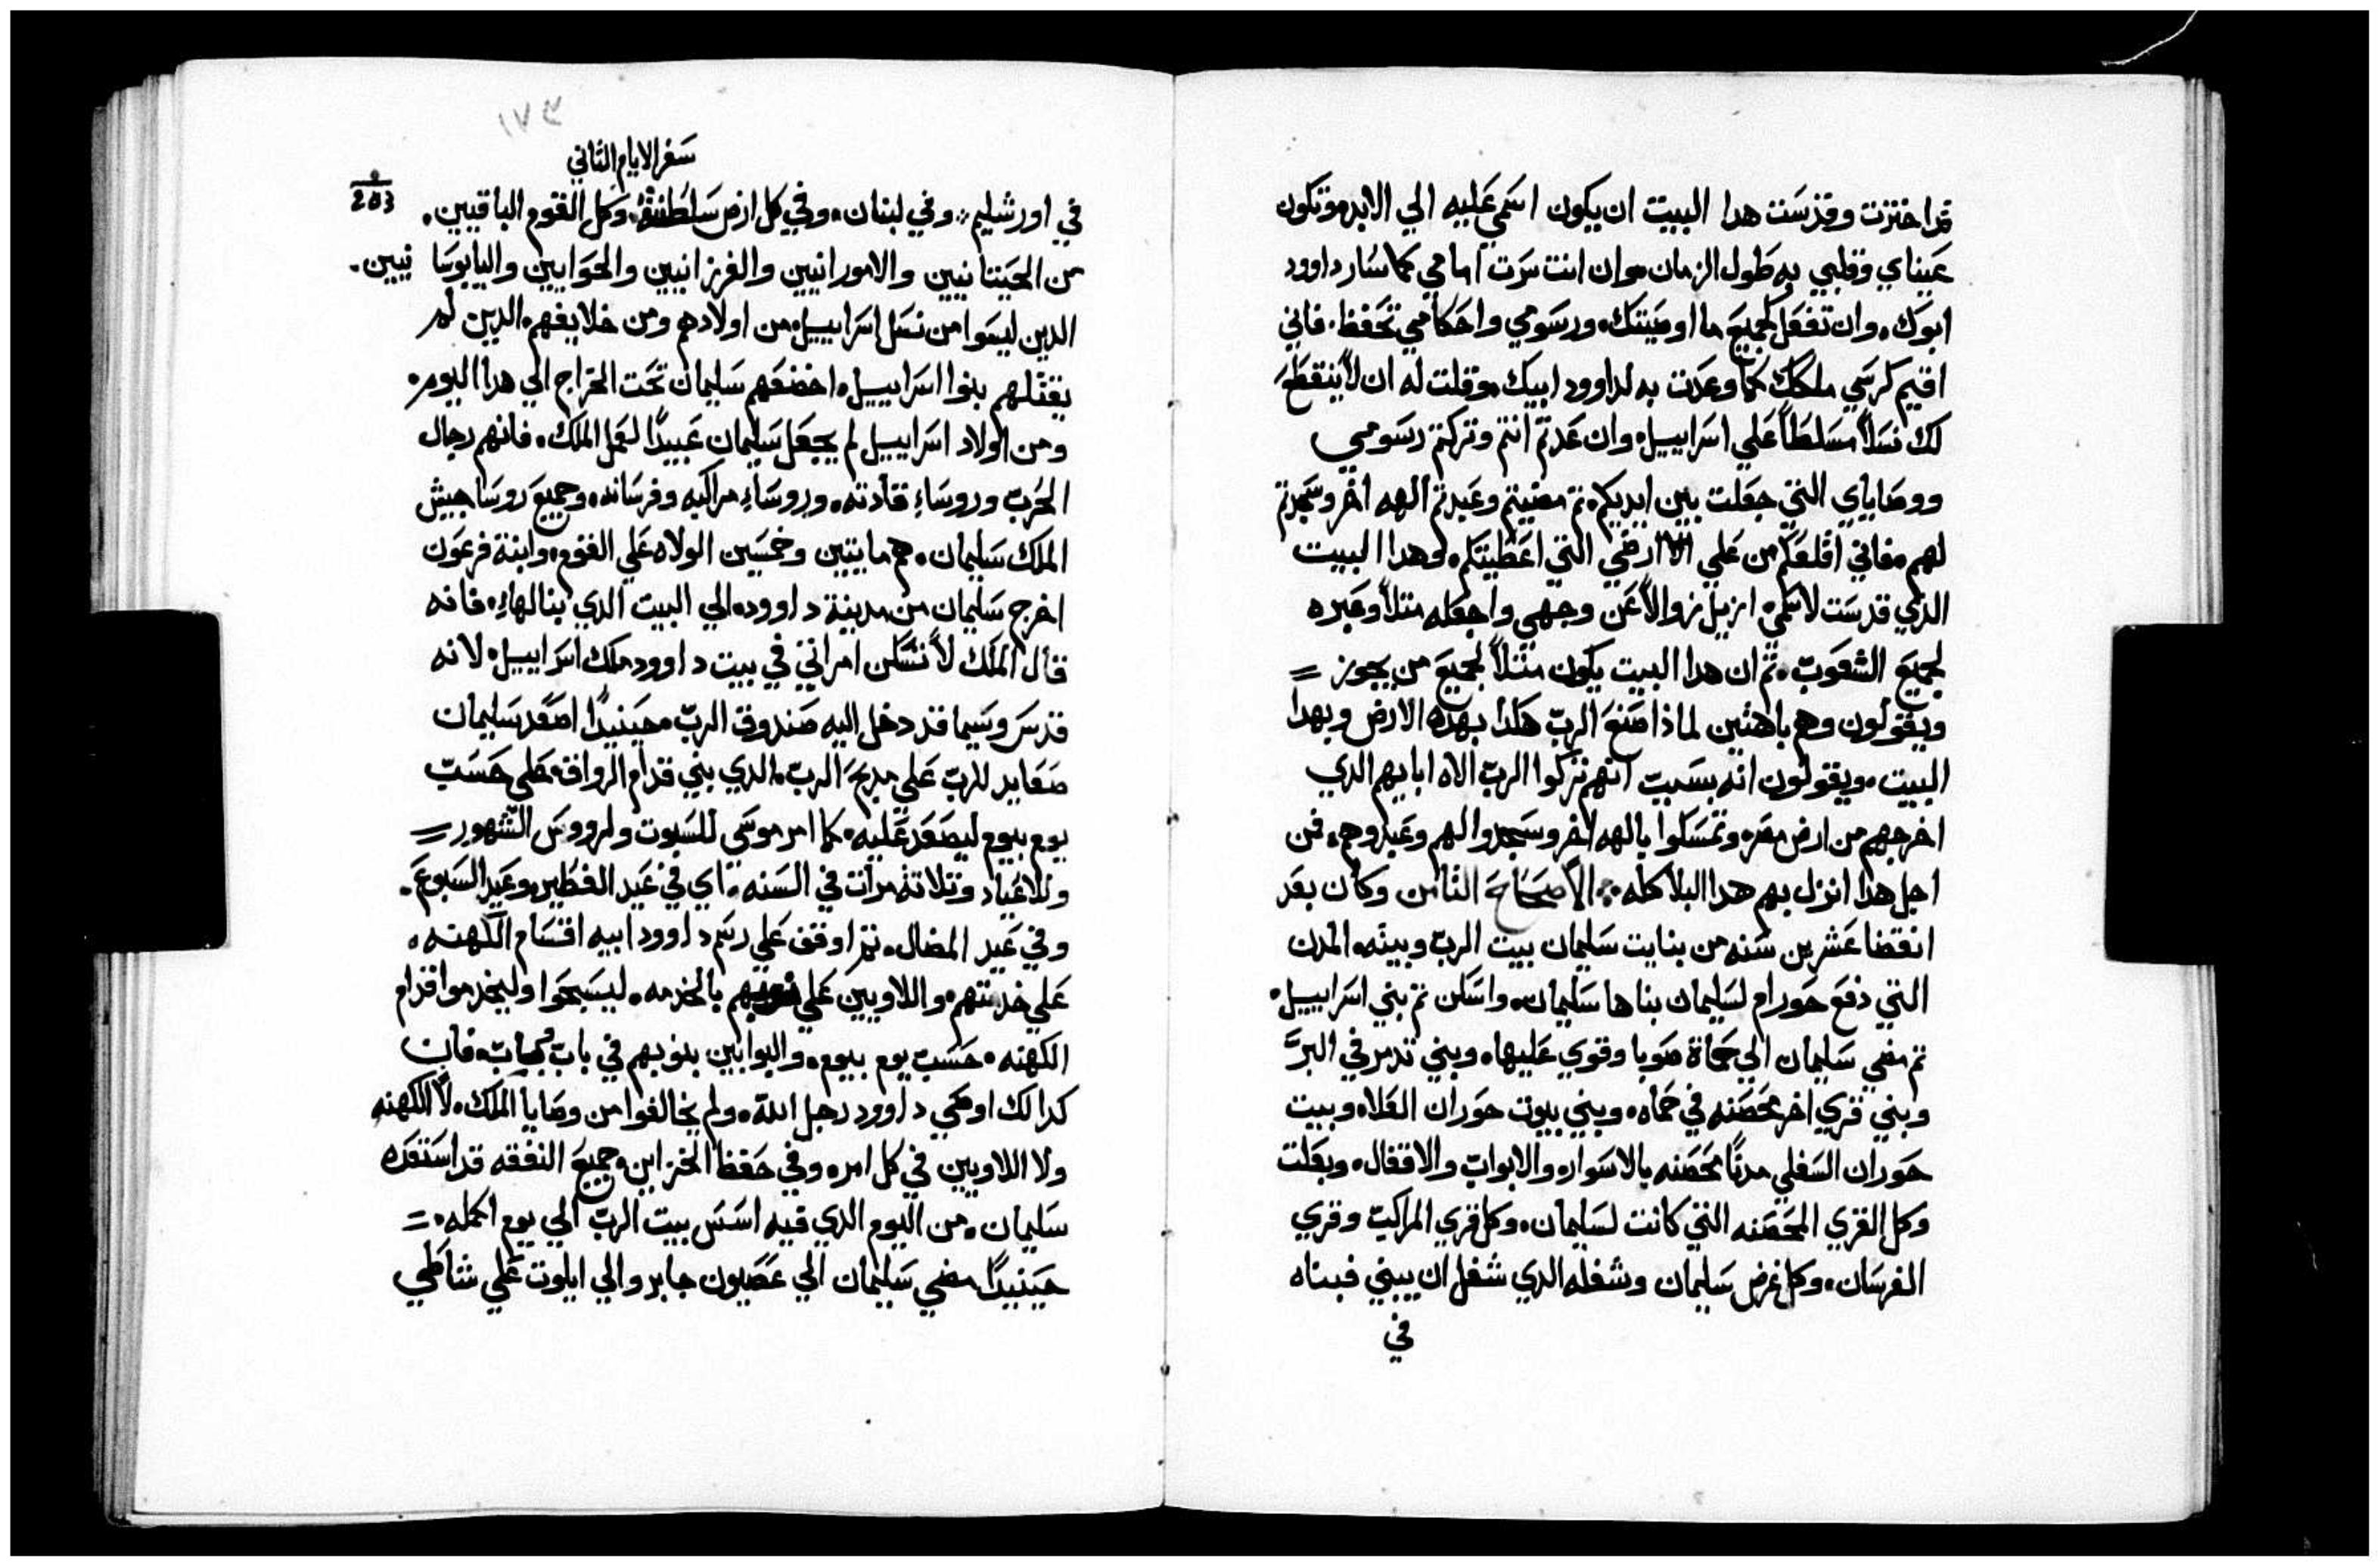 قد اخترت وقدست هدا البيت ان يكون اسمي عليه الي الابد وتكون
عيناي وقلبي به طول الزمان وان انت سرت امامي كما سار داوود
ابوك، وان تفعل كجميع ما اوصيتك، ورسومي واحكامي تحفظ، فاني
اقيم كرسي ملكك كما وعدت به لداوود ابيك، وقلت له ان لا ينقطع
لك نسلاً مسلطاً علي اسراييل، وان عدتم انتم وتركتم رسومي
ووصاياي التي جعلت بين ايديكم، تم مضيتم وعبدتم الهه اخر وسجدتم
لهم، فاني اقلعكم من علي ارضي التي اعطيتكم، وهدا البيت
الذي قدست لاسمي، ازيل زوالاً عن وجهي واجعله مثلاً وعبره
لجميع الشعوب، تم ان هدا البيت يكون مثلاً لجميع من يجوز =
ويقولون وهم باهتين لماذا صنع الرب هكدا بهده الارض وبهدا
البيت، ويقولون انه بسبب انهم تركوا الرب الاه ابايهم الدي
اخرجهم من ارض مصر، وتمسكوا بالهه اخر وسجدوا لهم وعبدوهم، فمن
اجل هدا انزل بهم هدا البلا كله ؞ الاصحاح الثامن وكان بعد
انقضا عشرين سنه من بنايت سليمان بيت الرب وبيته، المدن
التي دفع حورام لسليمان بناها سليمان، واسكن تم بني اسراييل،
تم مضي سليمان الي حماة صوبا وقوي عليها، وبني تدمر في البر
وبني قري اخر محصنه في حماه، وبني بيوت حوران العلا، وبيت
حوران السفلي مدناً محصنه بالاسوار، والابواب والاقفال، وبعلت
وكل القري المحصنه التي كانت لسليمان، وكل قري المراكب وقري
الفرسان، وكل غرض سليمان وشغله الدي شغل ان يبني فبناه
في
٣٧١
سفر الايام الثاني
203
في اورشليم، وفي لبنان، وفي كل ارض سلطنته، وكل القوم الباقيين،
من الحيتانيين والامورانيين والفرزانيين والحوايين واليابوسانيين،
الدين ليسوا من نسل اسراييل، من اولادهم ومن خلايفهم، الدين لم
يقتلهم بنوا اسراييل، اخضعهم سليمان تحت الخراج الي هدا اليوم،
ومن اولاد اسراييل لم يجعل سليمان عبيداً لعمل الملك، فانهم رجال
الحرب وروساء قادته، وروساء مراكبه وفرسانه، وجميع روسا جيش
الملك سليمان، هم مايتين وخمسين الولاه علي القوم، وابنة فرعون
اخرج سليمان من مدينة داوود، الي البيت الدي بنا لها، فانه
قال الملك لا تسكن امراتي في بيت داوود ملك اسراييل، لانه
قدس وسيما قد دخل اليه صندوق الرب، حينيداً اصعد سليمان
صعايد للرب علي مدبح الرب، الدي بني قدام الرواق، علي حسب
يوم بيوم ليصعد عليه، كما امر موسي للسبوت ولرووس الشهور =
وللاعياد وتلاتة مرات في السنه، اي في عيد الفطير، وعيد السبوع،
وفي عيد المضال، تم اوقف علي رسم داوود ابيه اقسام الكهنه،
علي خدمتهم، واللاويين علي بالخدمه، ليسبحوا وليخدموا قدام
الكهنه، حسب يوم بيوم، والبوابين بنوبهم في باب باب، فان
كدالك اوصي داوود رجل الله، ولم يخالفوا من وصايا الملك، لا الكهنه
ولا اللاويين في كل امر، وفي حفظ الخزاين، جميع النفقه قد استعده
سليمان، من اليوم الدي فيه اسس بيت الرب الي يوم اكمله =
حينيداً مضي سليمان الي عصيون جابر والي ايلوت علي شاطي